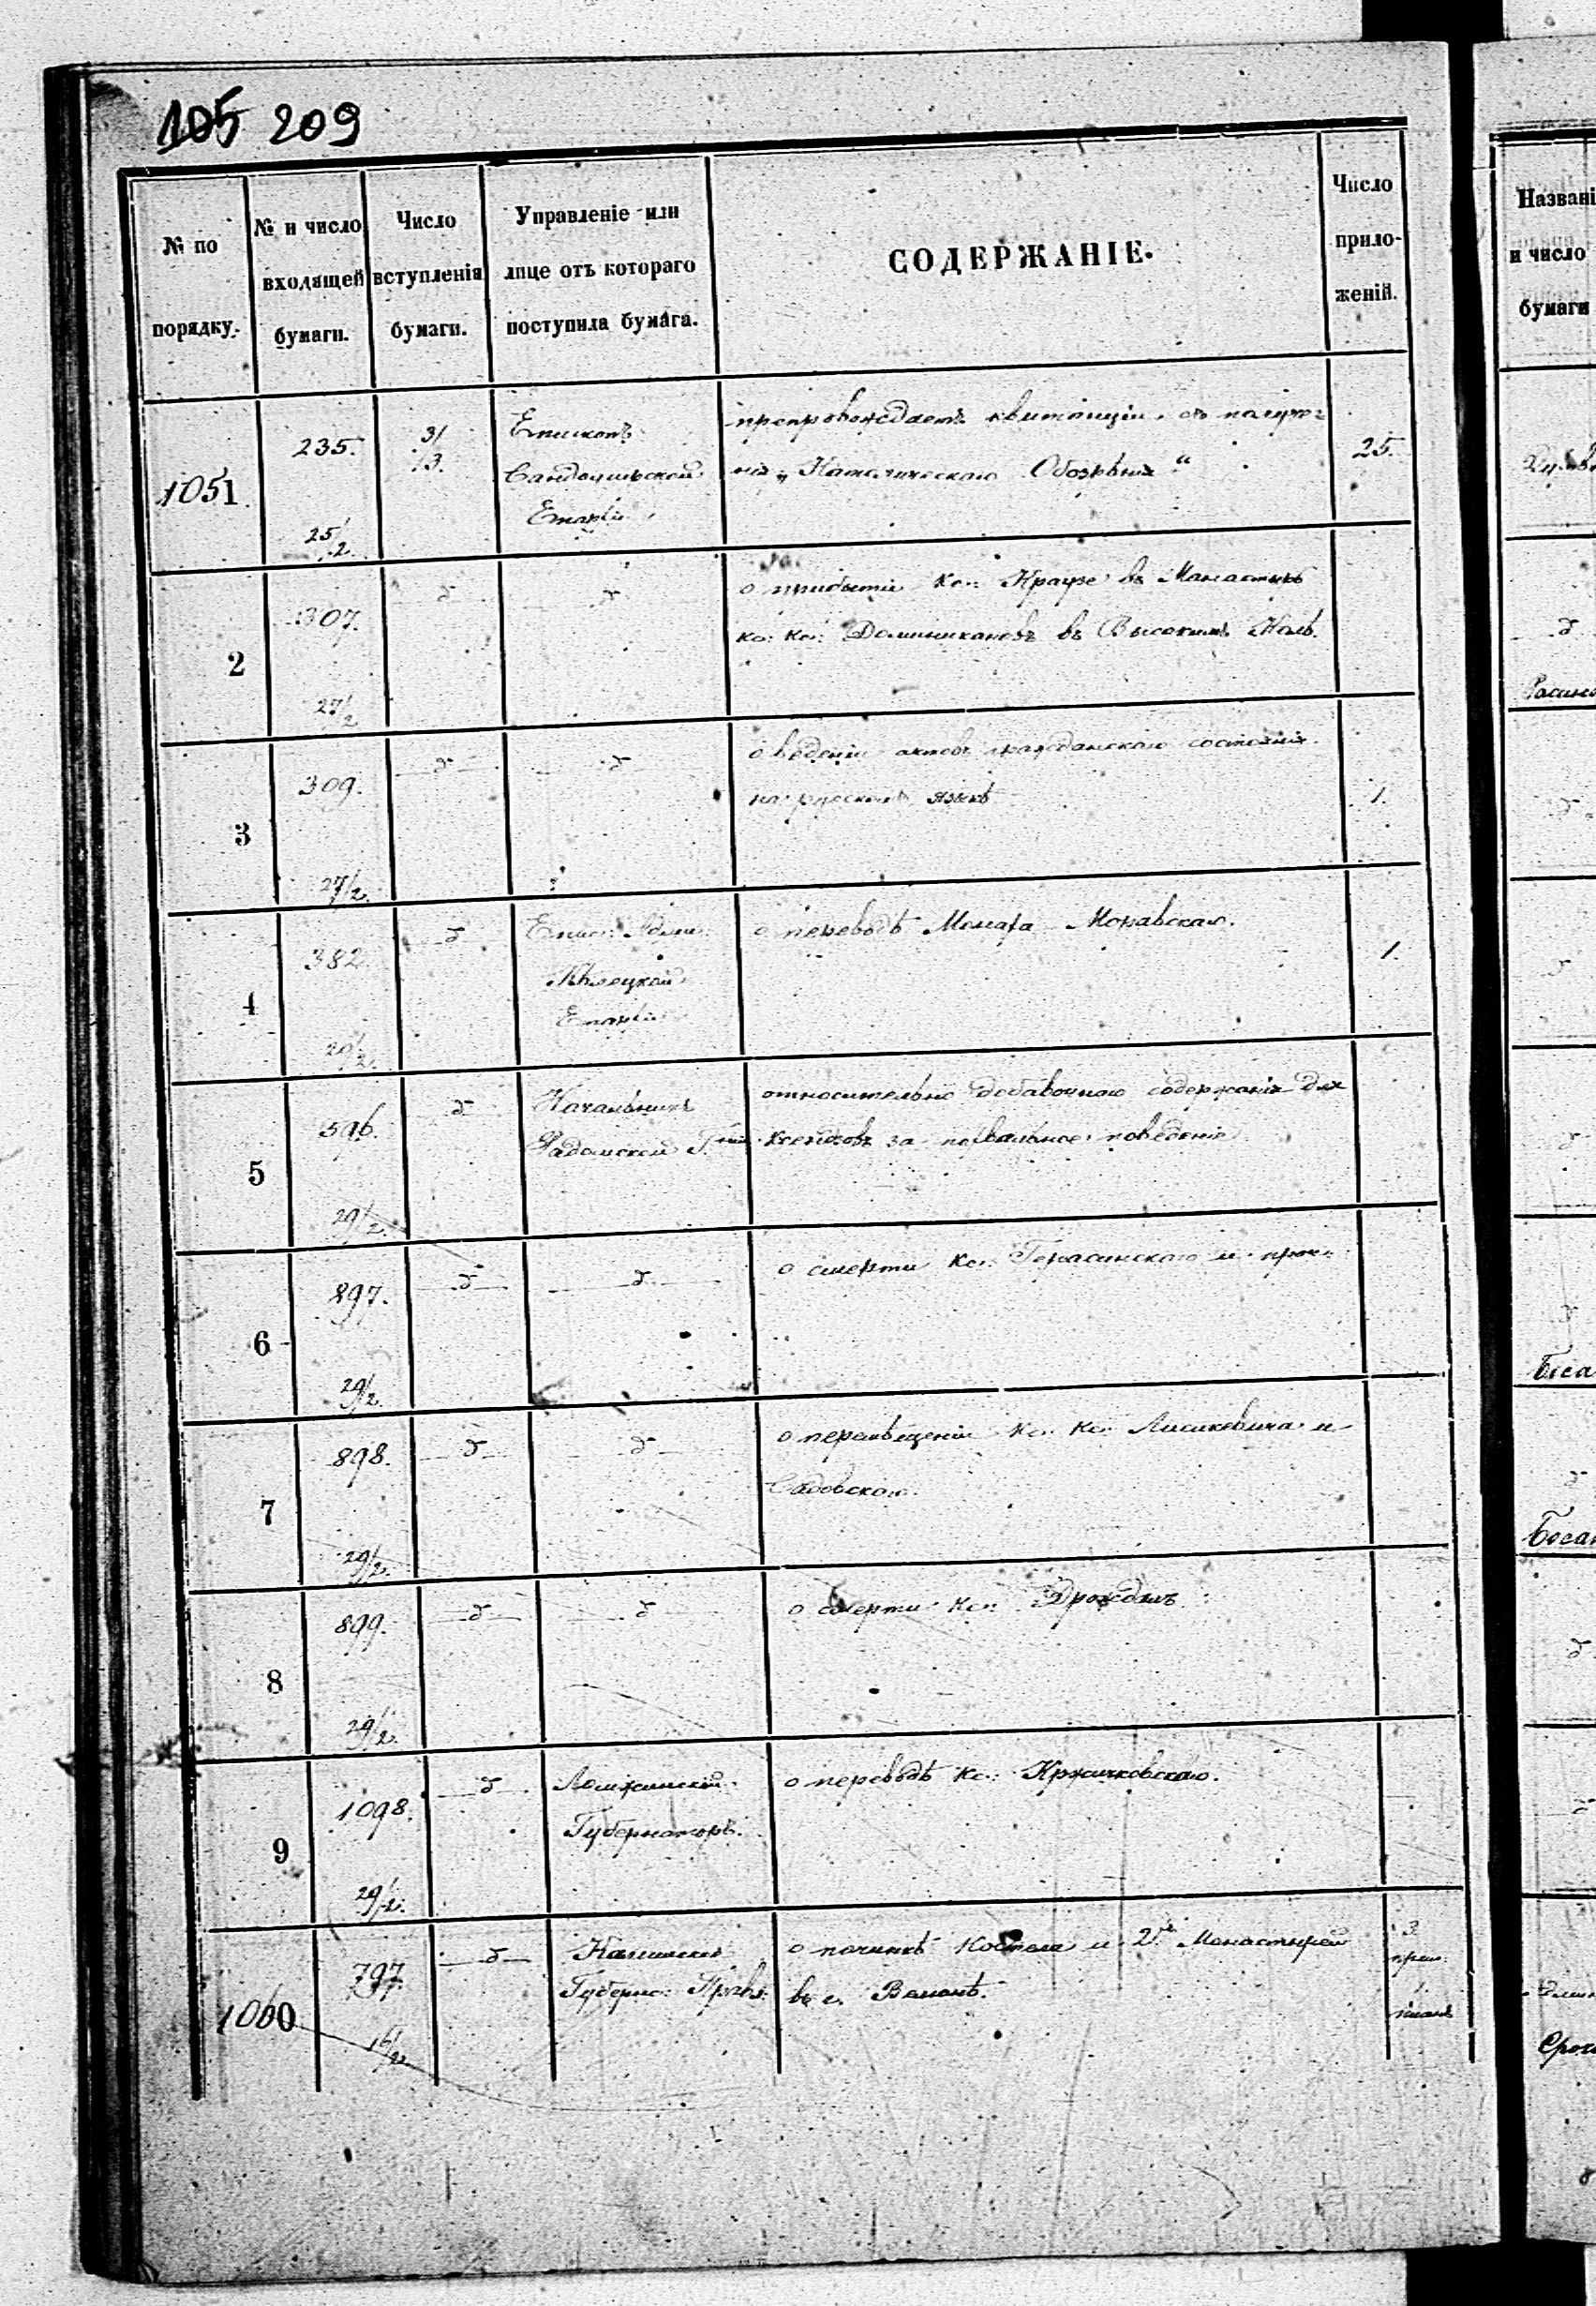 105 209
№ по порядку.
№ и число входящей бумаги.
Число вступленія бумаги.
Управленіе или лице отъ котораго поступила бумага.
СОДЕРЖАНІЕ.
Число прило-женій.
1051
235.
25/2
3/3.
Епископъ
Сандомирской
Епархіи
препровождаетъ квитанціи въ получе=
ніи „Католическаго Обозрѣнія“
25.
2
307.
27/2
д
д
о прибытіи Кс: Краузе въ Монастырь
кс: кс: Доминикановъ въ Высокимъ Колѣ.
3
309.
27/2.
д
д
о веденіи актовъ гражданскаго состоянія
на русскомъ языкѣ
1.
4
382.
20/2.
д
Епис: Адми:
Кѣлецкой
Епархіи
о переводѣ Монаха
1.
5
596.
29/2.
д
Начальникъ
Радомской Г.
относительно добавочнаго содержанія для
Ксендзовъ за похвальное поведеніе
6
897.
29/2.
д
д
о смерти Кс: и проч:
7
898.
29/2.
д
д
о перемѣщеніи Кс: Кс: Лисикевича и
Садовскаго.
8
899.
29/2.
д
д
о смерти Кс:
9
1098.
29/2.
д
Ломжинскій
Губернаторъ.
о переводѣ Кс: Кржичковскаго.
1060
797.
16/2
д
Калишск:
Губерн: Правл:
о починкѣ Костела и 2хъ Монастырей
въ с.
3.
прил:
1.
планъ
Названі
и число
бумаги
д
д
д
Бѣса
д
Боса
д
д
Сроч